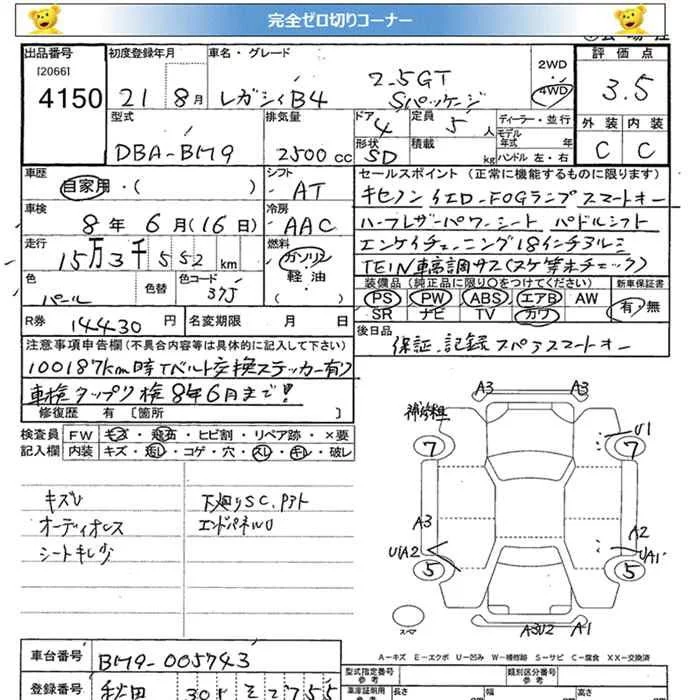 完全ゼロ切りコーナー
出品番号 初度登録年月 車名・グレード 2WD・4WD 評価点
[2066]
4150 21 8月 レガシィB4 2.5GT Sパッケージ 3.5
型式 排気量 ドア 4 定員 5人 ディーラー・並行 外装 内装
モデル年式 年
DBA-BM9 2500cc 形状 SD 積載 kg ハンドル 左・右 C C
車歴 シフト セールスポイント (正常に機能するものに限ります)
自家用・( ) AT キセノン イエローFOGランプ スマートキー
車検 冷房 ハーフレザーパワーシート パドルシフト
8年 6月(16日) AAC エンケイチューニング18インチアルミ
走行 燃料 TEIN車高調サス(スケ等未チェック)
15万3千552km ガソリン・軽油・( ) 装備品 (純正品に限り○をつけてください) 新車保証書
色 色替 色コード PS PW ABS エアB AW 有・無
パール 37J SR ナビ TV カワ
R券 14430円 名変期限 月 日 後日品
注意事項申告欄(不具合内容等は具体的に記入して下さい) 保証.記録 スペアスマートキー
100187km時Tベルト交換ステッカー有り
車検タップリ検8年6月まで!
修復歴 有 〔箇所 〕
検査員 FW キズ・飛石・ヒビ割・リペア跡・×要
記入欄 内装 キズ・汚レ・コゲ・穴・スレ・キレ・破レ
キズU 下廻りSC,
オーディオレス エンドパネルU
シートキレ少
A3 A3
U1
7 7
A3 A2
U1A2 UA1
5 5
スペア
A3U2 A1
A-キズ E-エクボ U-凹み W-補修跡 S-サビ C-腐食 XX-交換済
車台番号 BM9-005743 型式指定番号 参考 類別区分番号 参考
登録番号 秋田 301 755 車庫証明用 参考 長さ 幅 高さ